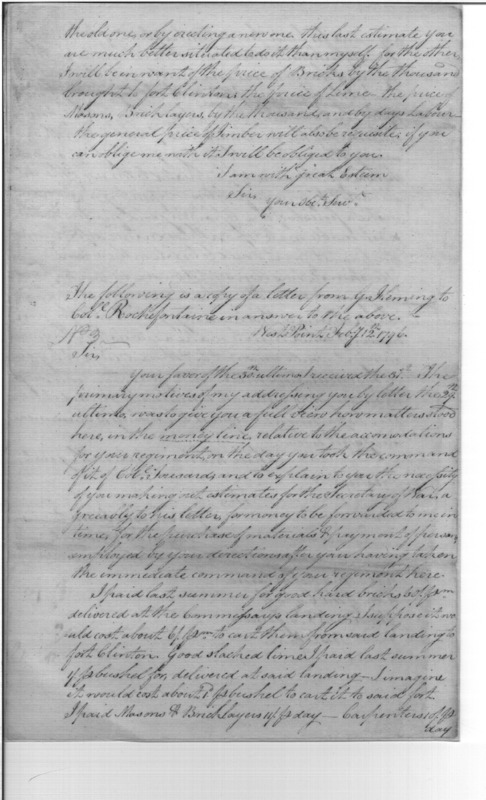 the old one, or by creating a new one this last estimate you
are much better situated to do it than myself. for the other
I will be in want of the price of Bricks by the thousand
brought to fort Clinton, the price of Lime. the price of
Masons, Brick layers, by the thousand, and by days Labour
the general price of Timber will also be requisite, if you
can oblige me with it I will be obliged to you.
I am with great Esteem
Sir
Your Obt. Servt.
The following is a copy of a letter from G. Fleming to
Coll. Rochefontaine in answer to the above.
No. 3
West Point, Feby 12th 1796.
Sir
Your favor of the 30th ultimo I received the 3d. The
primary motives of my addressing you by letter the 29th
ultimo, was to give you a full view how matters stood
here, in the money line, relative to the accomodations
for your regiment, on the day you took the command
of it of Col. and to explain to you the necessity
of you making out estimates for the Secretary of War, a
greeably to his letter, for money to be forwarded to me in
time, for the purchase of materials & payment of persons
employed by your directions after your having taken
the immediate command of your regiment here.
I paid last summer for good hard bricks pr. m
delivered at the Commissarys landing, I suppose it wo
uld cost about 6/ pr. m to cart them from said landing to
fort Clinton. Good slacked lime I paid last summer
pr. bushel for, delivered at said landing — I imagine
it would cost about pr. bushel to cart it to said fort
I paid Masons & Brick layers pr. day — Carpenters pr.
day